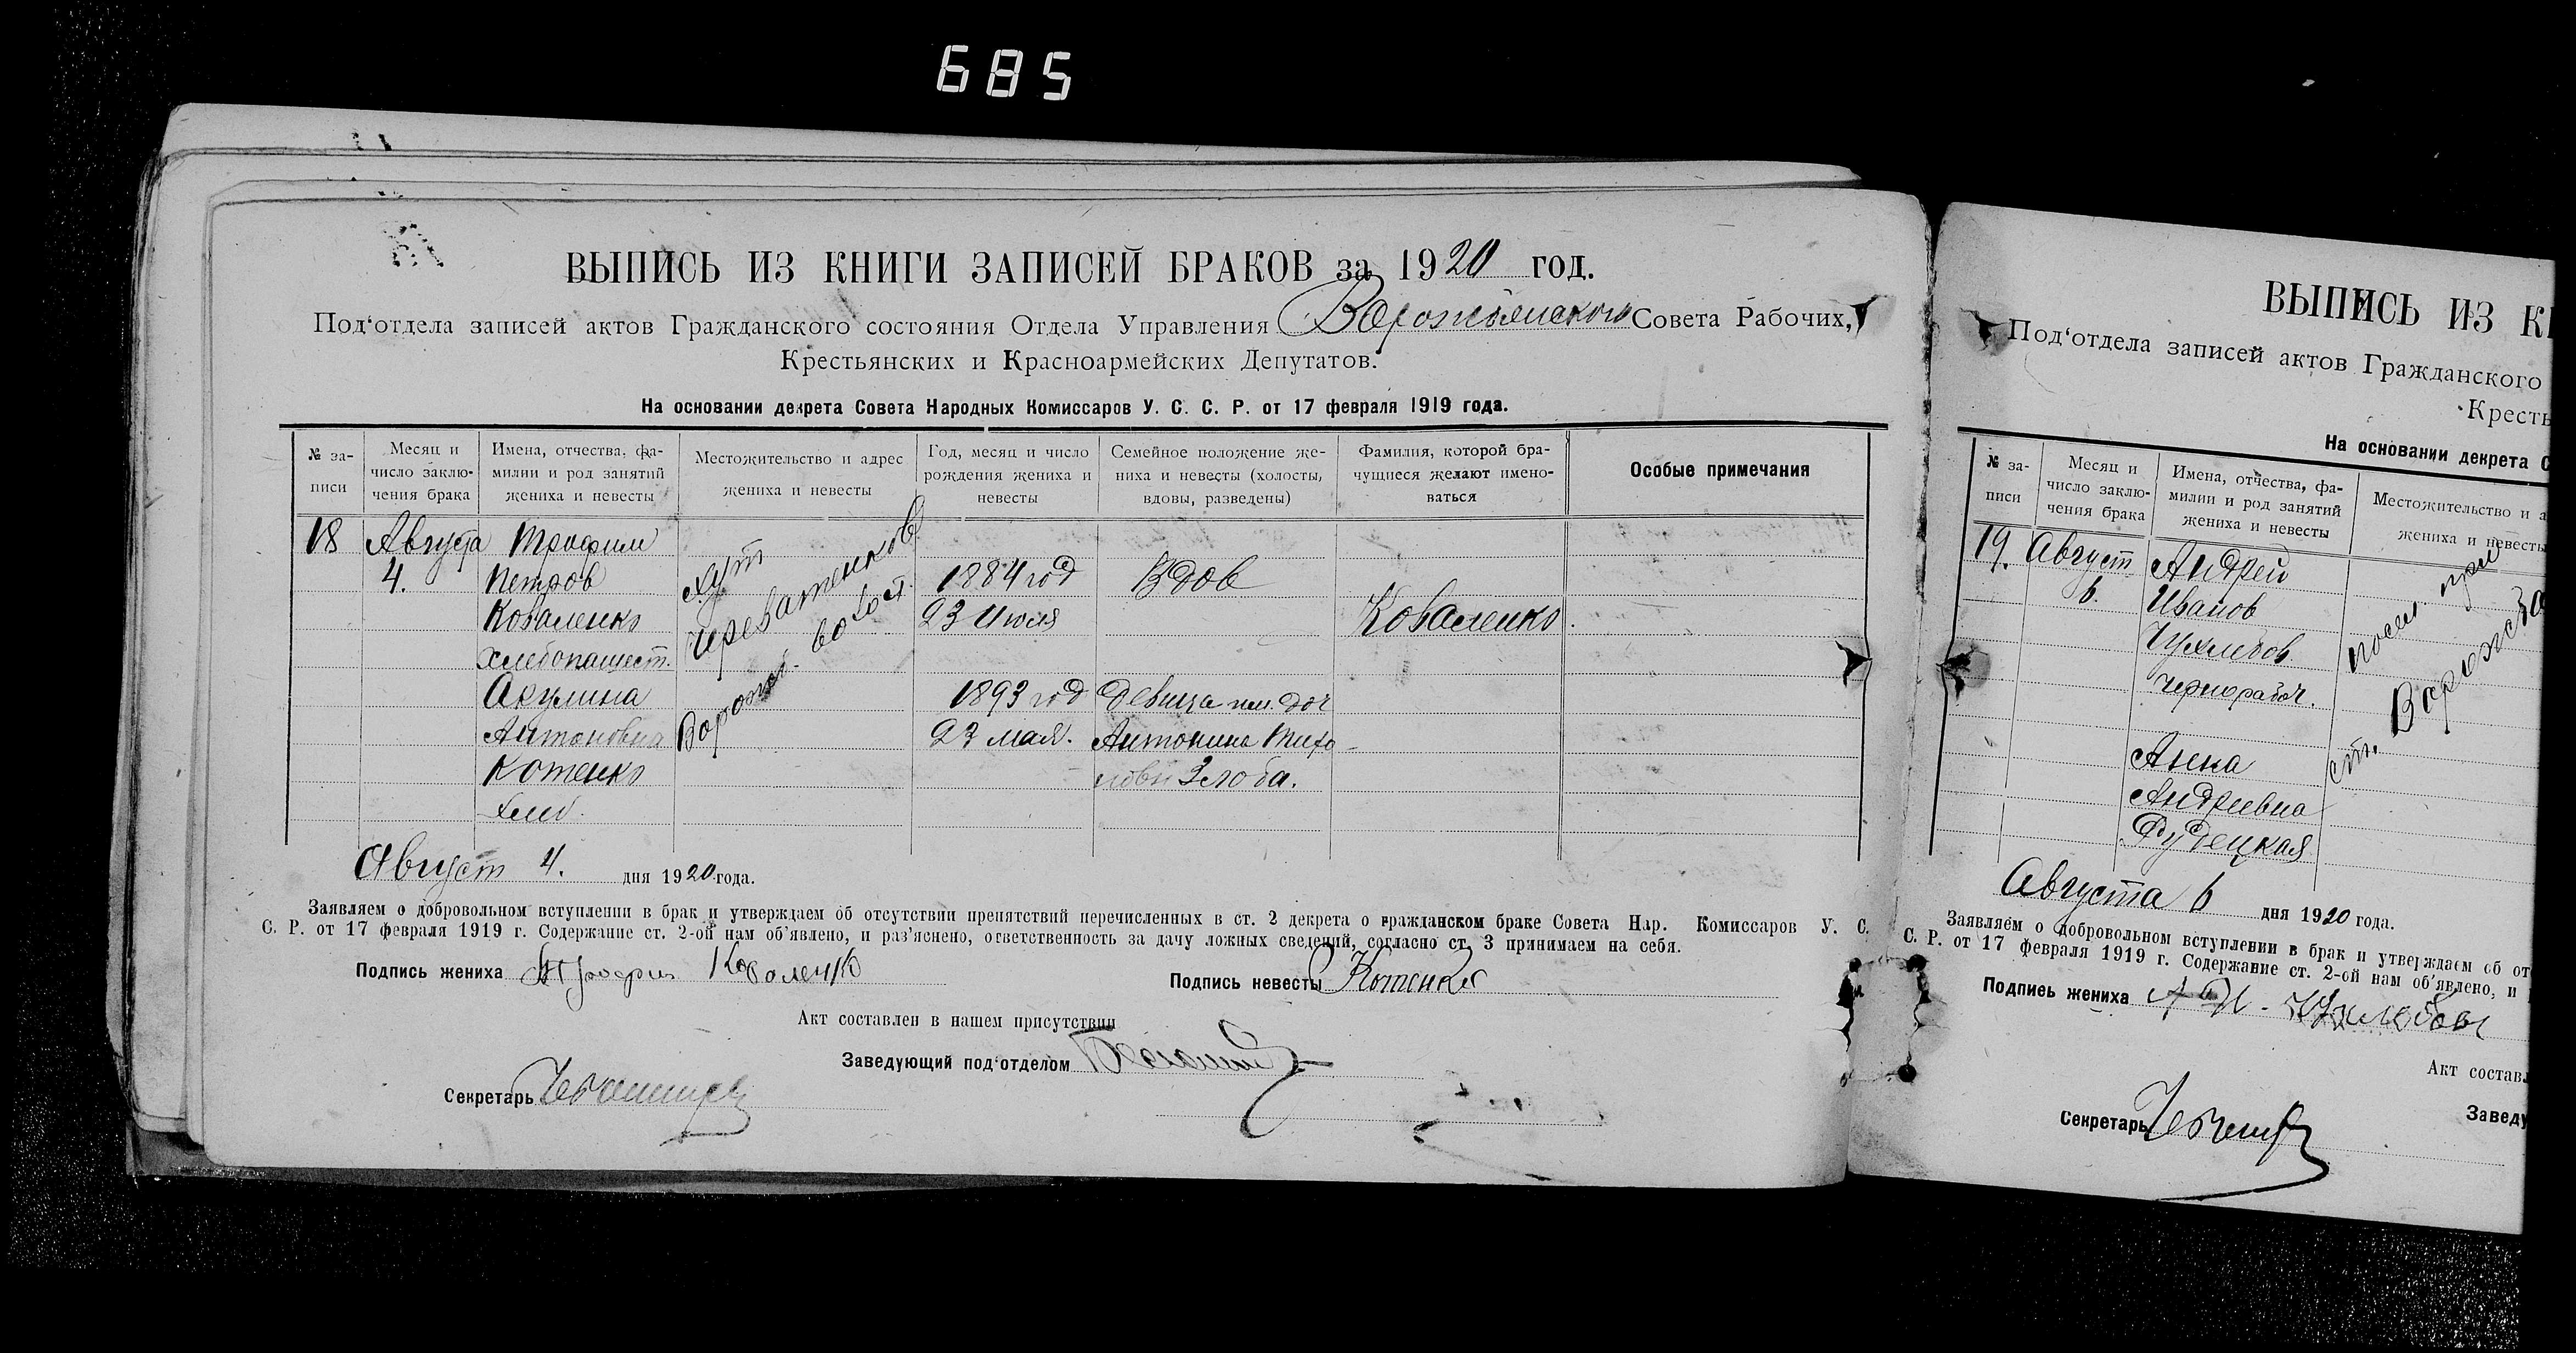 685
ВЫПИСЬ ИЗ КНИГИ ЗАПИСЕЙ БРАКОВ за 1920 год.
Под‘отдела записей актов Гражданского состояния Отдела Управления Ворожбянского Совета Рабочих,
Крестьянских и Красноармейских Депутатов.
На основании декрета Совета Народных Комиссаров У. С. С. Р. от 17 февраля 1919 года.
№ за-
писи
Месяц и
число заклю-
чения брака
Имена, отчества, фа-
милии и род занятий
жениха и невесты
Местожительство и адрес
жениха и невесты
Год, месяц и число
рождения жениха и
невесты
Семейное положение же-
ниха и невесты (холосты,
вдовы, разведены)
Фамилия, которой бра-
чущиеся желают имено-
ваться
Особые примечания
18
Августа
4.
Трофим
Петров
Коваленко
хлебопашест.
Акулина
Антоновна
Котенко
хлеб.
хут
Череватенков
Ворожб. волост.
1884 год
23 Июля
1893 год
23 мая.
Вдов
Девица
Антонина
Злоба.
Коваленко.
Август 4. дня 1920 года.
Заявляем о добровольном вступлении в брак и утверждаем об отсутствии препятствий перечисленных в ст. 2 декрета о гражданском браке Совета Нар. Комиссаров У. С.
С. Р. от 17 февраля 1919 г. Содержание ст. 2-ой нам об’явлено, и раз’яснено, ответственность за дачу ложных сведений, согласно ст. 3 принимаем на себя.
Подпись жениха Трофим Коваленко
Подпись невесты Котенко
Акт составлен в нашем присутствии
Заведующий под‘отделом
Секретарь
ВЫПИСЬ ИЗ К
Под‘отдела записей актов Гражданского
Кресть
На основании декрета С
№ за-
писи
Месяц и
число заклю-
чения брака
Имена, отчества, фа-
милии и род занятий
жениха и невесты
Местожительство и а
жениха и невесты
19.
Август
6.
Андрей
Иванов
Чухлебов
чернорабоч.
Анна
Андреевна
Рудецкая
посел. при
ст. Ворожба
Августа 6 дня 1920 года.
Заявляем о добровольном вступлении в брак и утверждаем об от
С. Р. от 17 февраля 1919 г. Содержание ст. 2-ой нам об’явлено, и
Подпись жениха
Акт составл
Заведу
Секретарь